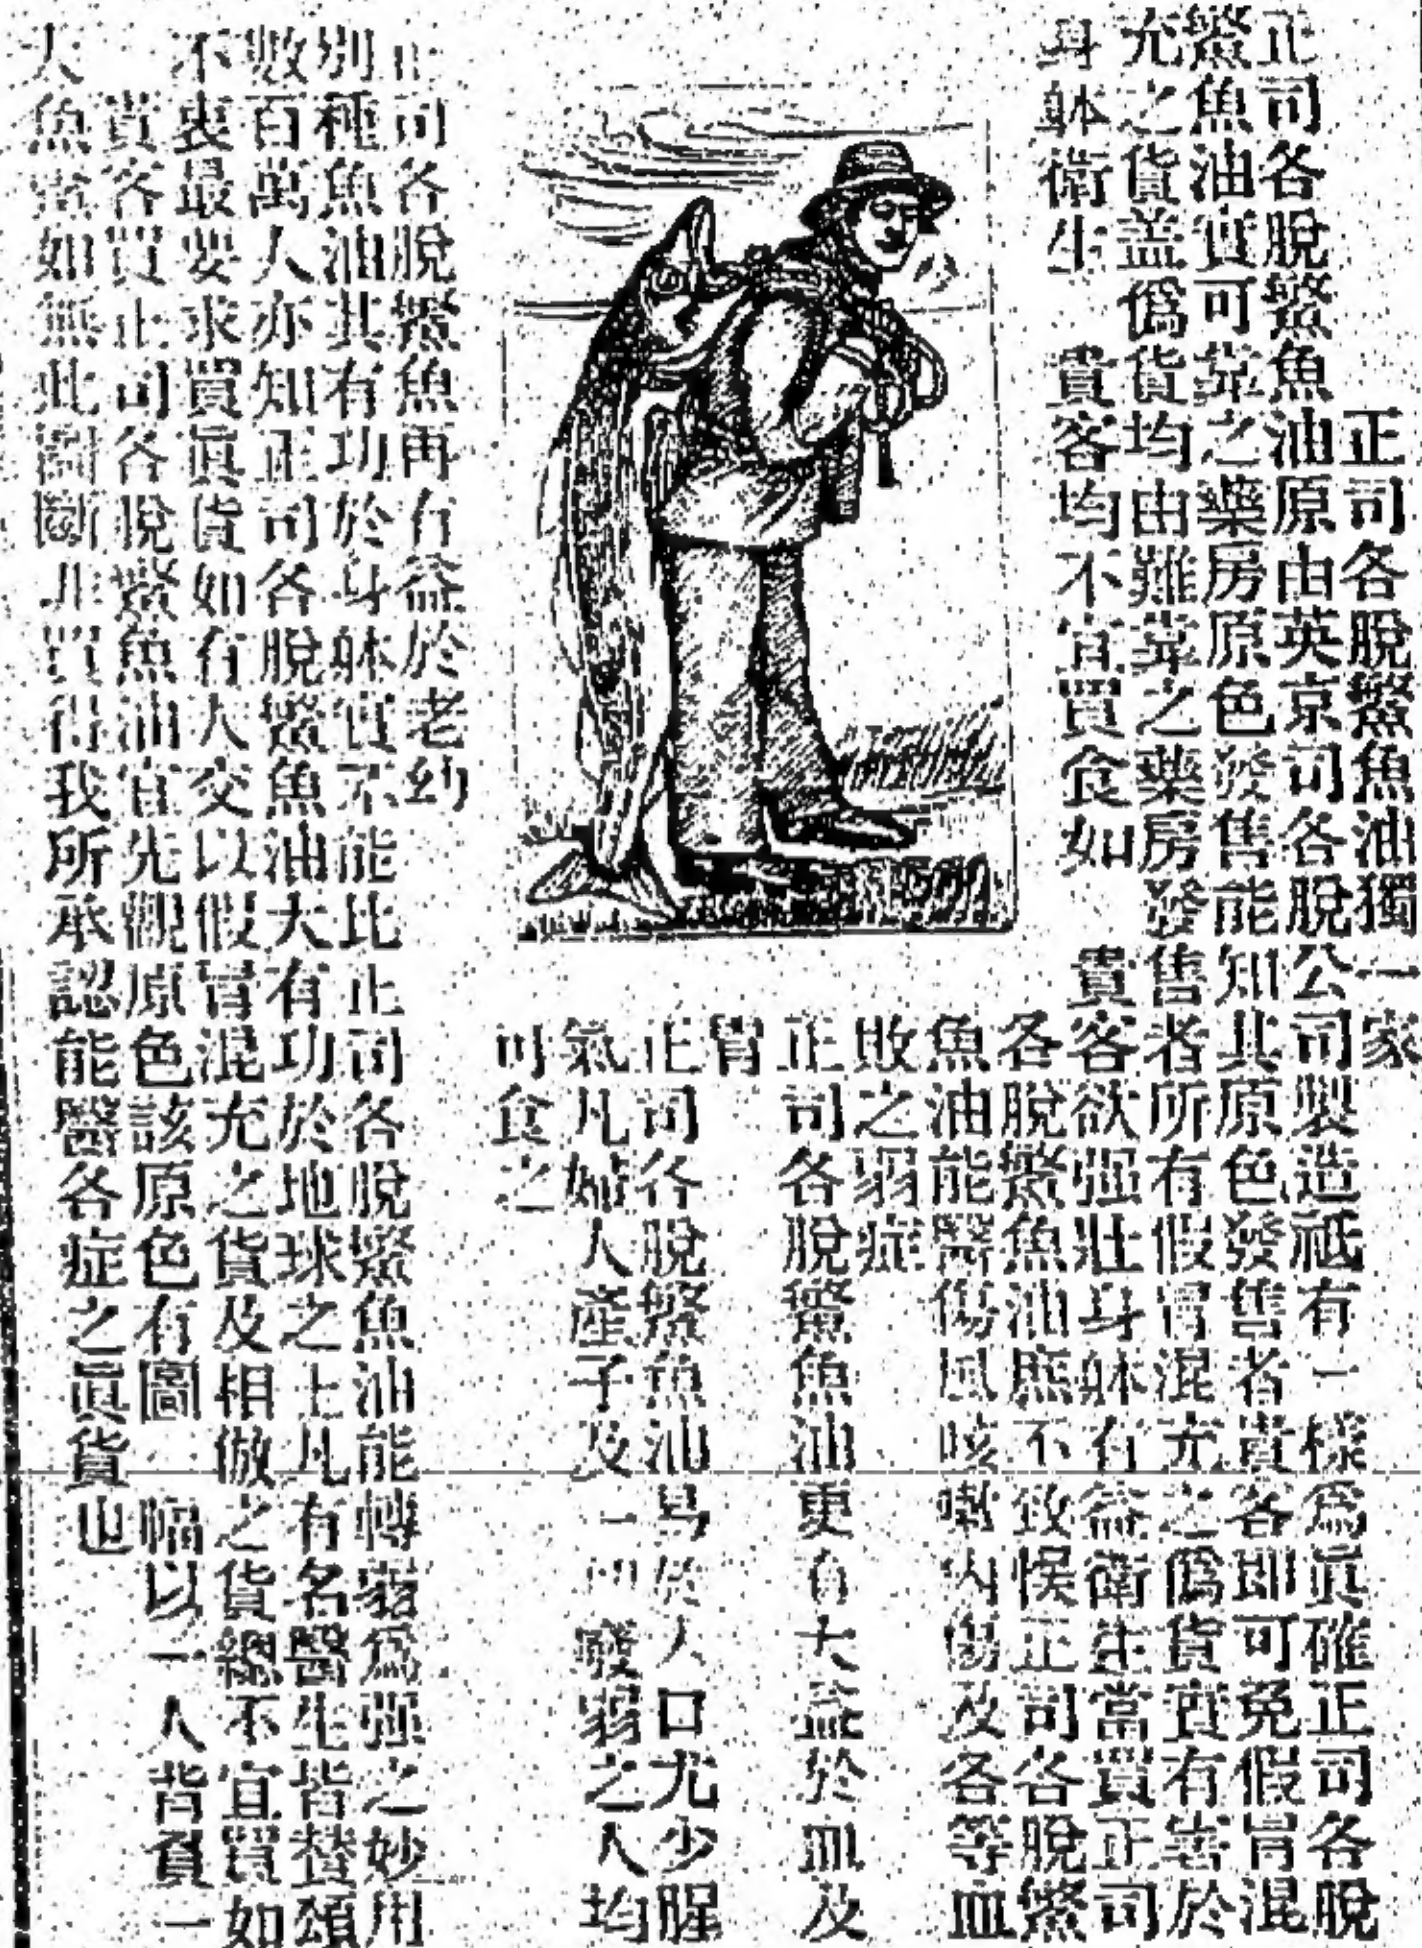 正司各脫鰵魚油獨一家
正司各脫鰵魚油原由英京司各脫公司製造祗有一樣爲眞確正司各脫
鰵魚油實可靠之藥房原色發售能知其原色發售者貴客即可免假冒混
充之貨盖僞貨均由難靠之藥房發售者所有假冒混充之僞貨實有害於
身躰衛生 貴客均不宜買食如 貴客欲强壯身躰有益衛生當買正司
各脫鰵魚油庶不致悞正司各脫鰵
魚油能醫傷風咳嗽內傷及各等血
敗之弱症
正司各脫鰵魚油更有大益於血及
胃
正司各脫鰵魚油易於人口尤少腥
氣凡婦人產子及一切弱之人均
可食之
正司各脫鰵魚再有益於老幼
別種魚油其有功於身躰實不能比正司各脫鰵魚油能轉弱爲强之妙用
數百萬人亦知正司各脫鰵魚油大有功於地球之上凡有名醫生皆贊頌
不最要求買眞貨如有人交以假冒混充之貨及相倣之貨總不宜買如
貴客買正司各脫鰵魚油宜先觀原色該原色有圖一幅以一人背負一
大魚如無此圖斷非買得我所承認能醫各症之眞貨也